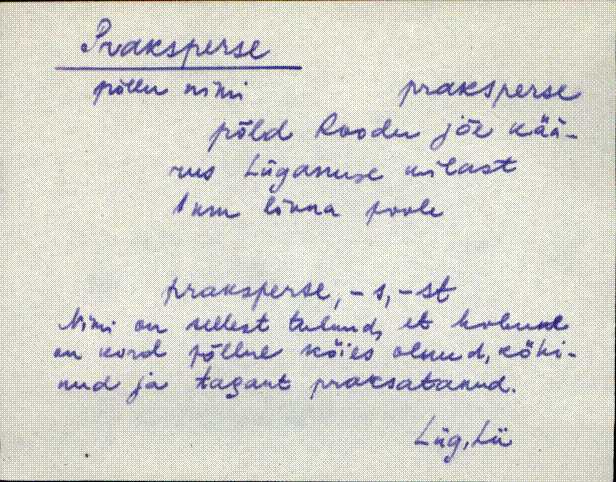 Praksperse
põllu nimi praksperse
põld Roodu jõe kää-
rus Lüganuse külast
1 km linna poole
praksperse, -s, -st
Nimi on sellest tulnud, et hobune
on kord põllul köies olnud, köhi-
nud ja tagant praksatanud.
Lüg, Lü